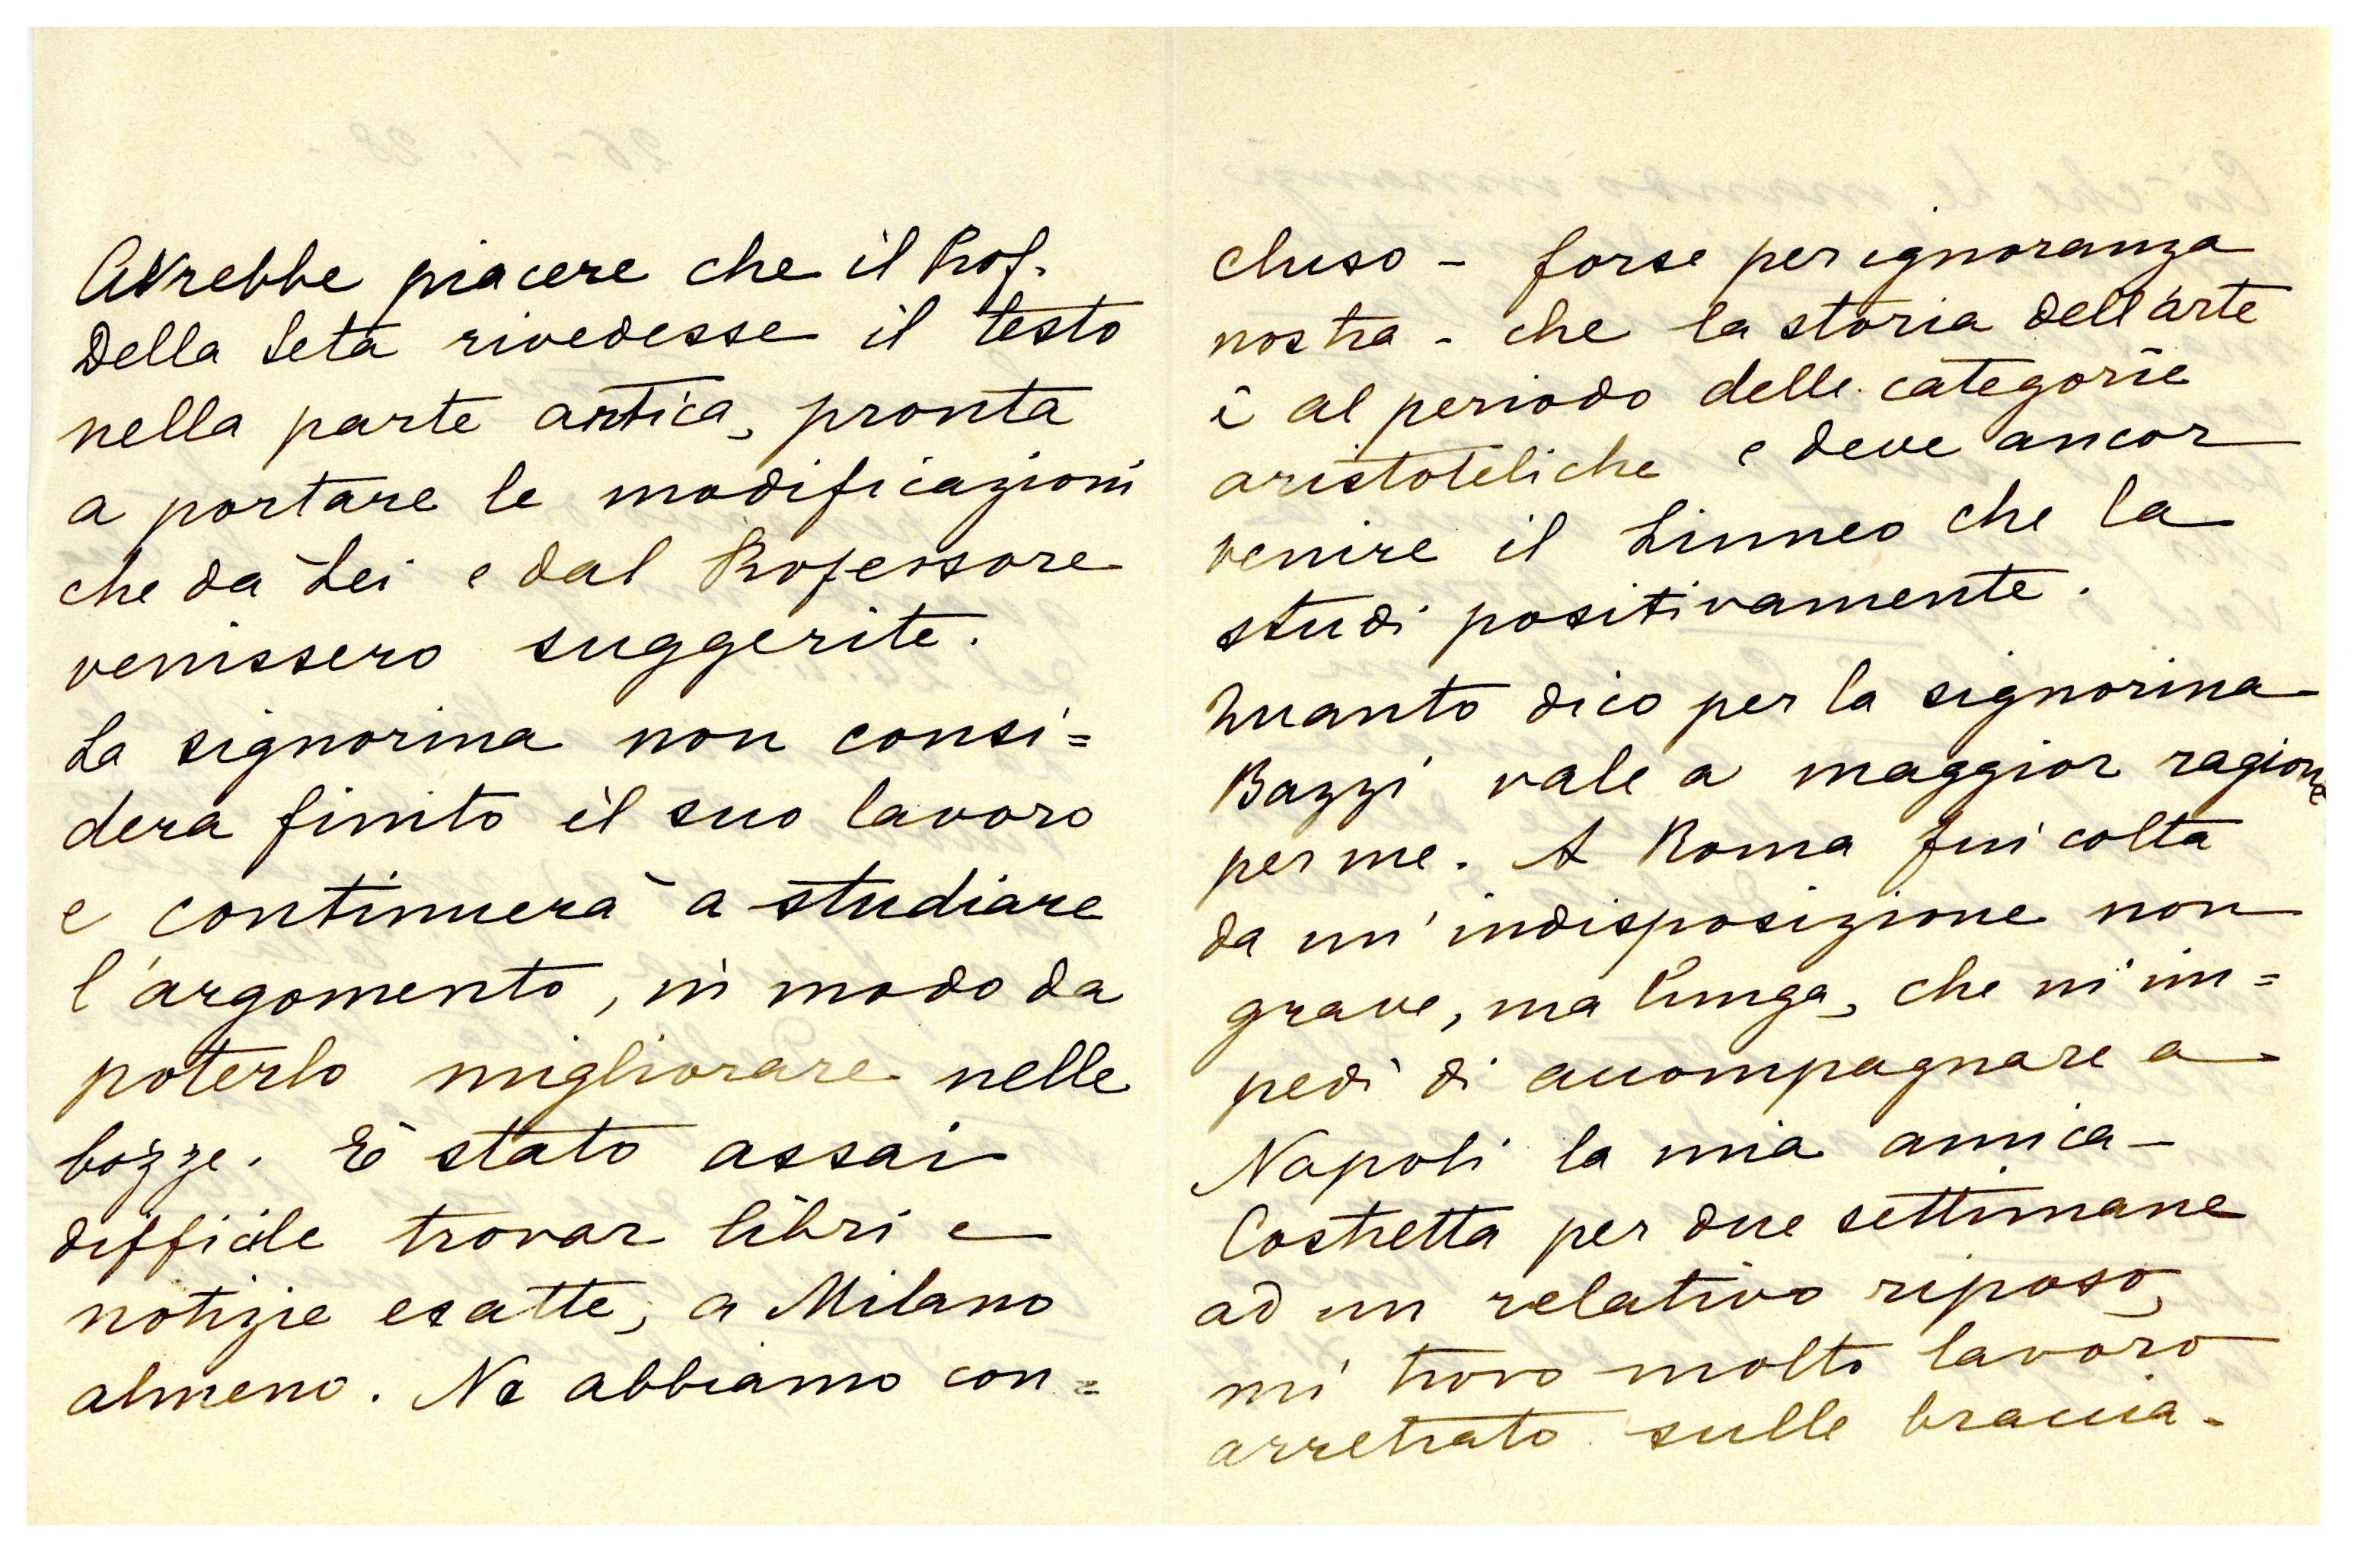 Avrebbe piacere che il Prof.
Della Seta rivedesse il testo
nella parte antica, pronta
a portare le modificazioni
che da Lei e dal Professore
venissero suggerite.
La signorina non consi=
dera finito il suo lavoro
e continuerà a studiare
l'argomento, in modo da
poterlo migliorare nelle
bozze. È stato assai
difficile trovar libri e
notizie esatte, a Milano
almeno. Ne abbiamo con=
cluso - forse per ignoranza
nostra - che la storia dell'arte
è al periodo delle categorie
aristoteliche e deve ancor
venire il Linneo che la
studi positivamente.
Quanto dico per la signorina
Bazzi vale a maggior ragione
per me. A Roma fui colta
da un'indisposizione non
grave, ma lunga, che m'im=
pedì di accompagnare a
Napoli la mia amica -
Costretta per due settimane
ad un relativo riposo,
mi trovo molto lavoro
arretrato sulle braccia.
26 - 1. 28 -